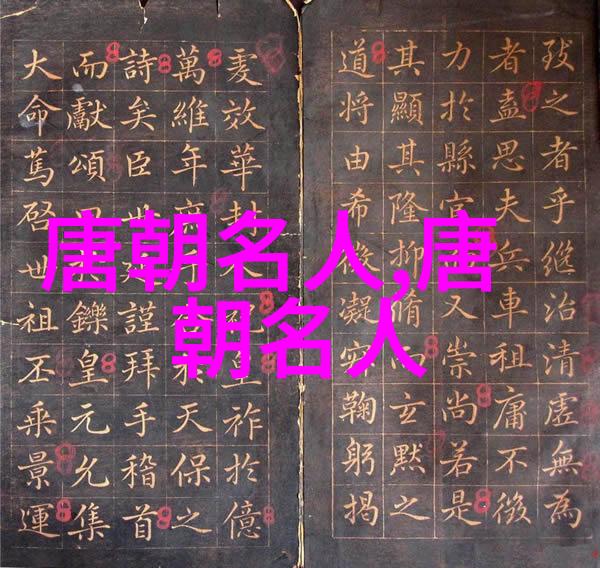 唐朝名人,唐
朝名人
致之者乎從治清虛無為
者蓋思夫兵車租庸不徵
力於縣官又崇尚若是
其顯其隆抑脩而玄默之
道將由希微凝寂鞠躬揭
虔效華封祚於億
萬維年於天保之
詩矣臣世謹拜手稽首
而獻頌曰鑠皇元允集
大命篤啓世祖丕乘景運